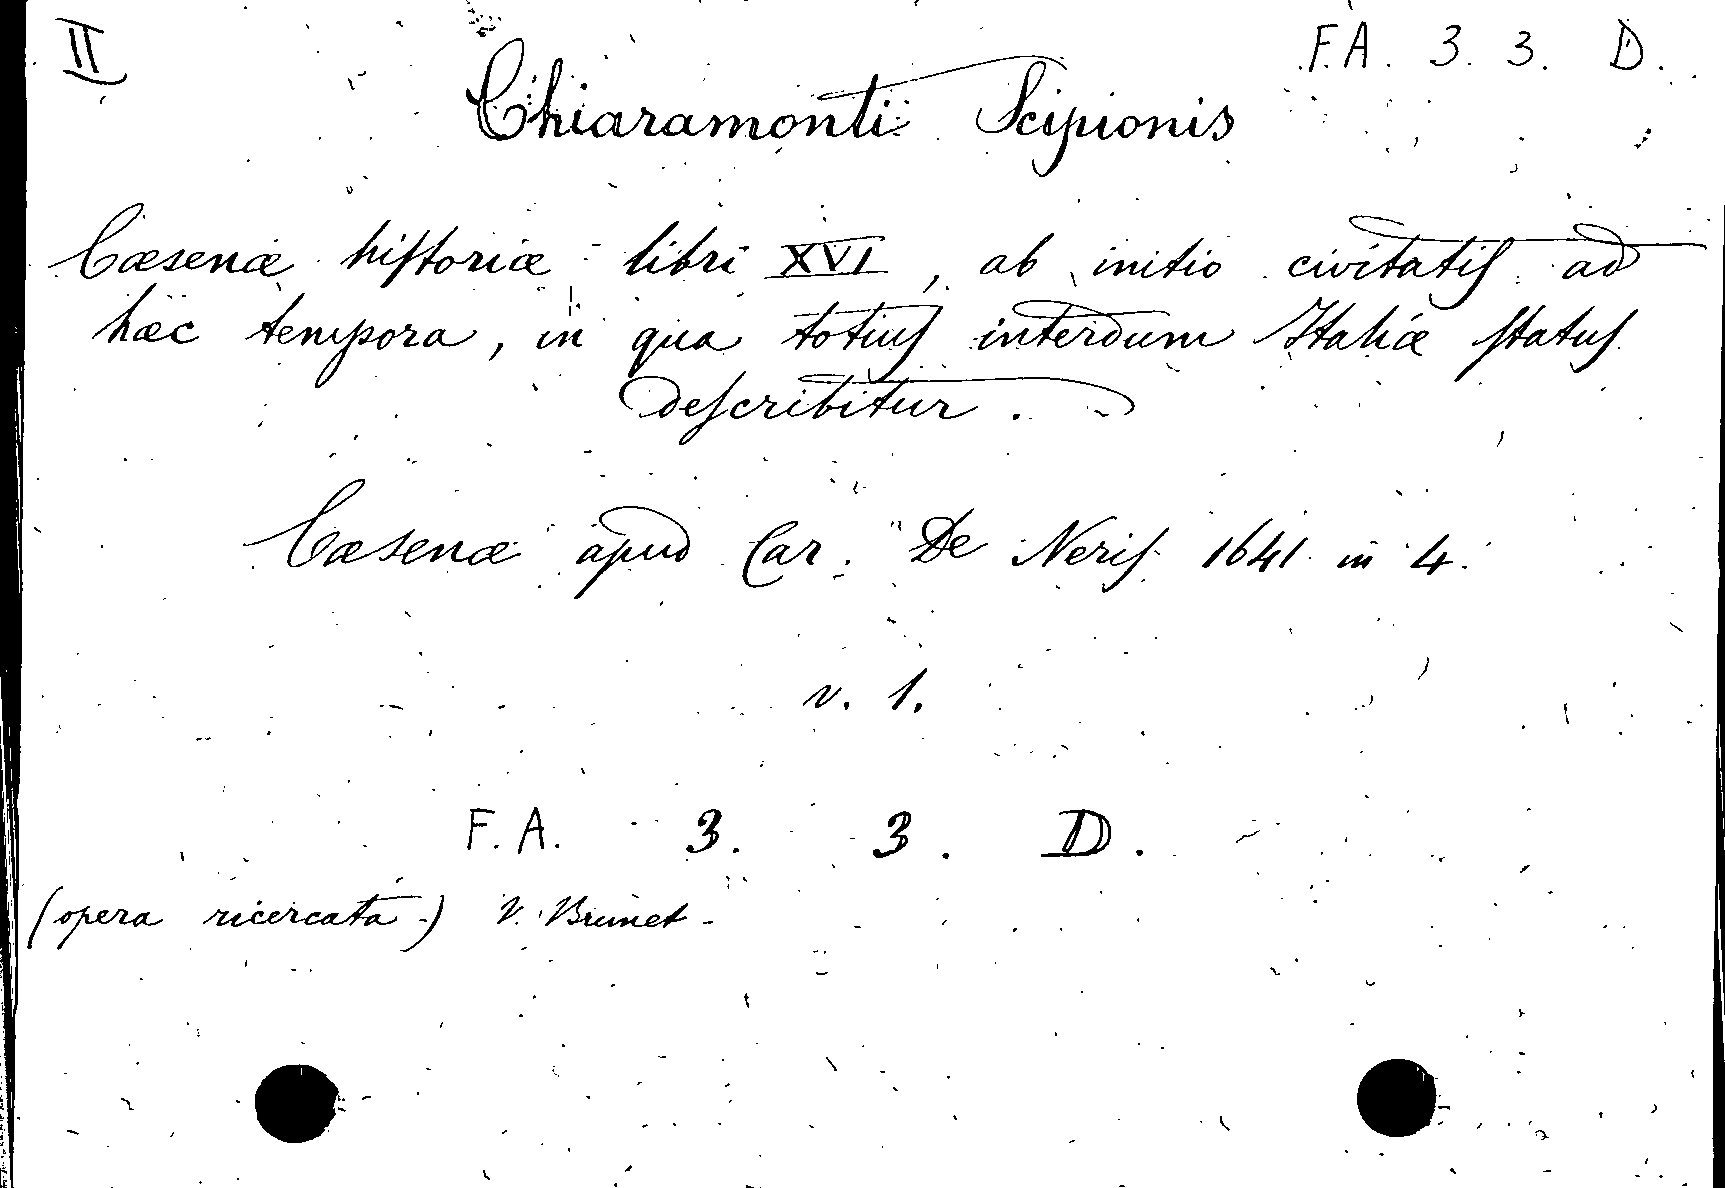 II F.A. 3. 3. D.
Chiaramonti Scipionis
Cæsenæ hiſtoriæ libri XVI, ab initio civitatiſ ad
hæc tempora, in qua totiuſ interdum Italiæ ſtatuſ
deſcribitur.
Cæsenæ apud Car. De Neriſ 1641 in 4.
v. 1.
F.A. 3. 3. D.
(opera ricercata) V. Brunet